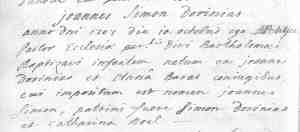 Joannes Simon Dorinias
anno dni 1707 die 10 octobris ego
Pastor Ecclesiæ Divi Bartholomei
Baptizavi infantem natum ex joanne
Dorinias et Maria Baras conjugibus
cui impositum est nomen joannes
Simon, patrini fuere Simon Dorinias
et catharina Noel.